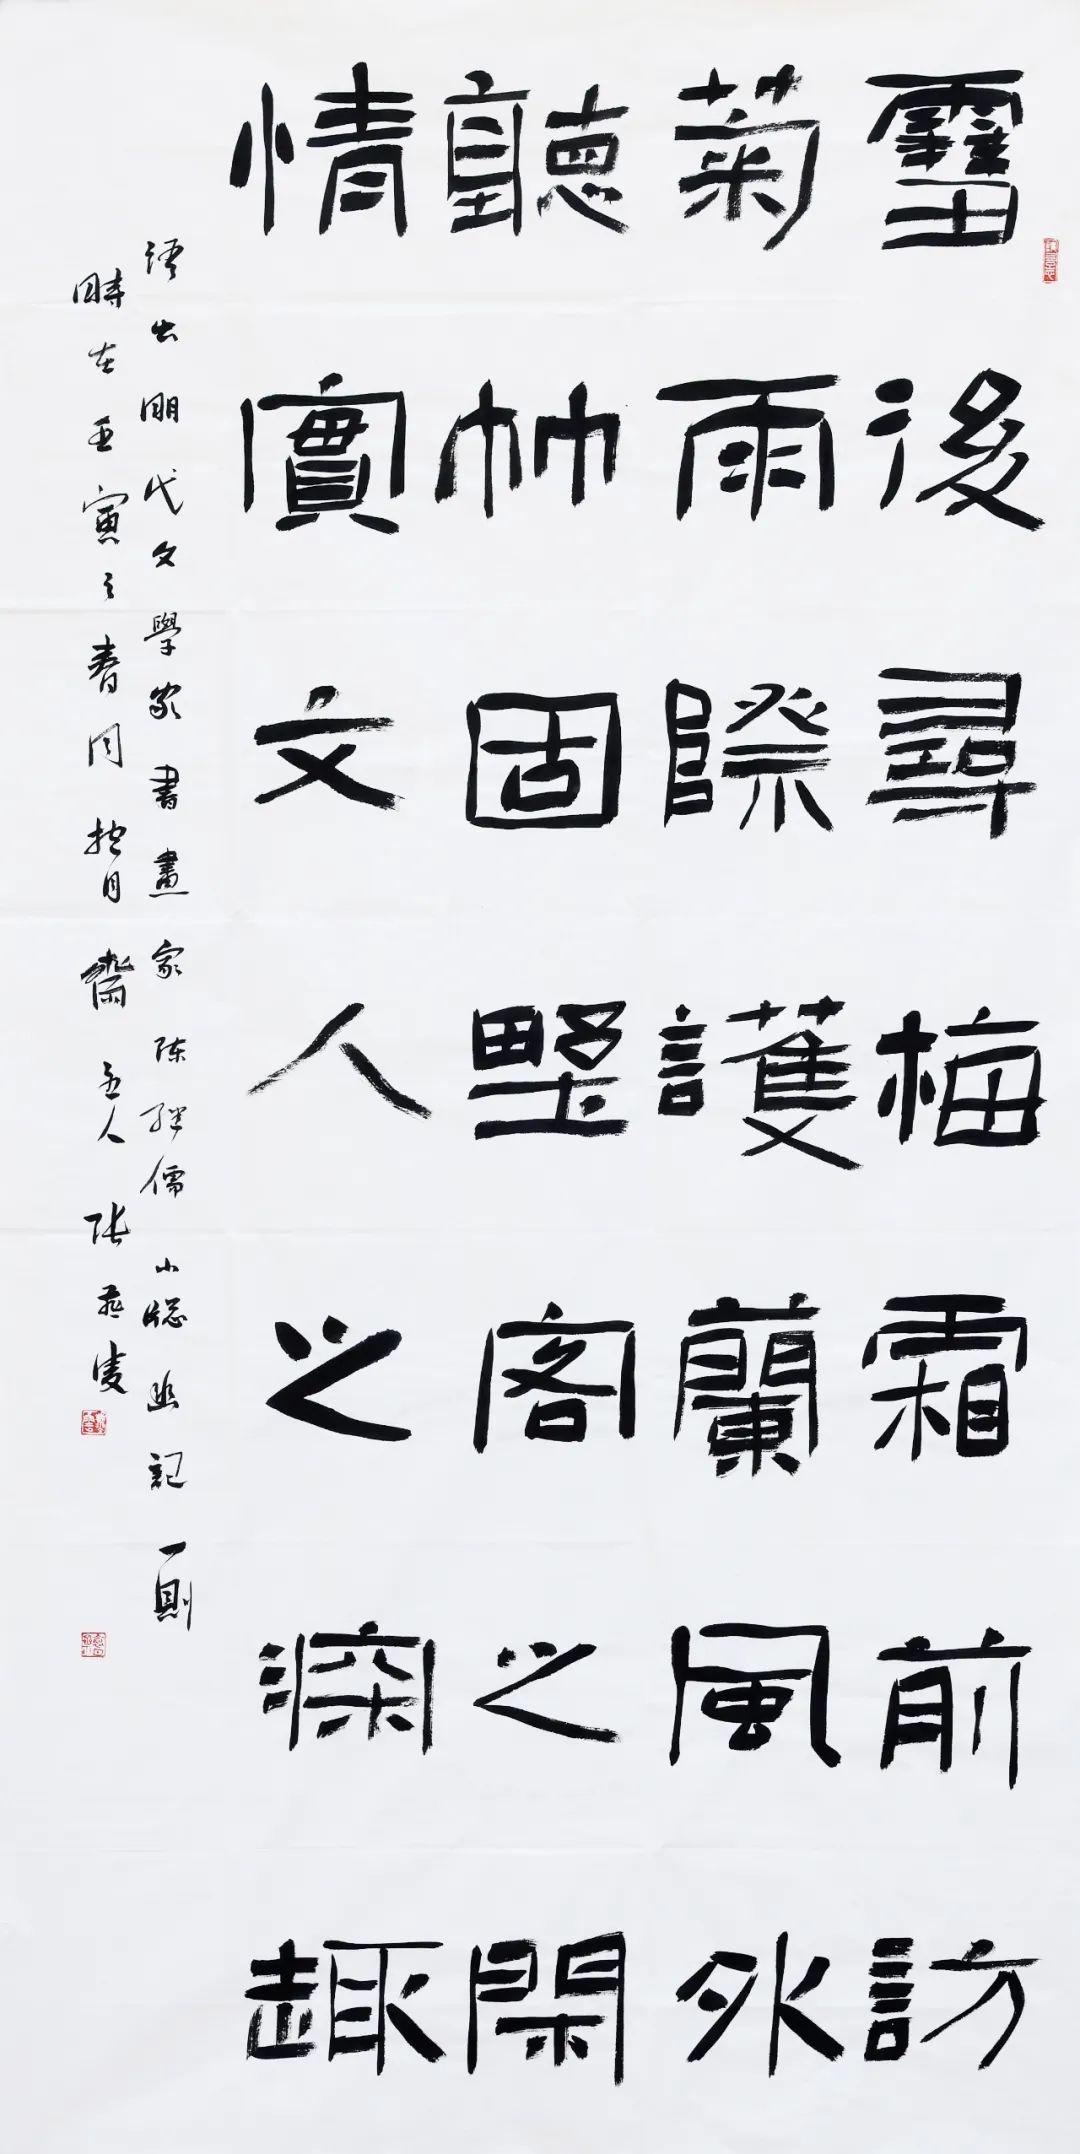 雪後尋梅霜前訪
菊雨際護蘭風外
聽竹固墅客之閒
情實文人之深趣
語出明代文學家書畫家陈继儒小窓幽記一則
時在壬寅之春月抱月齋主人张燕